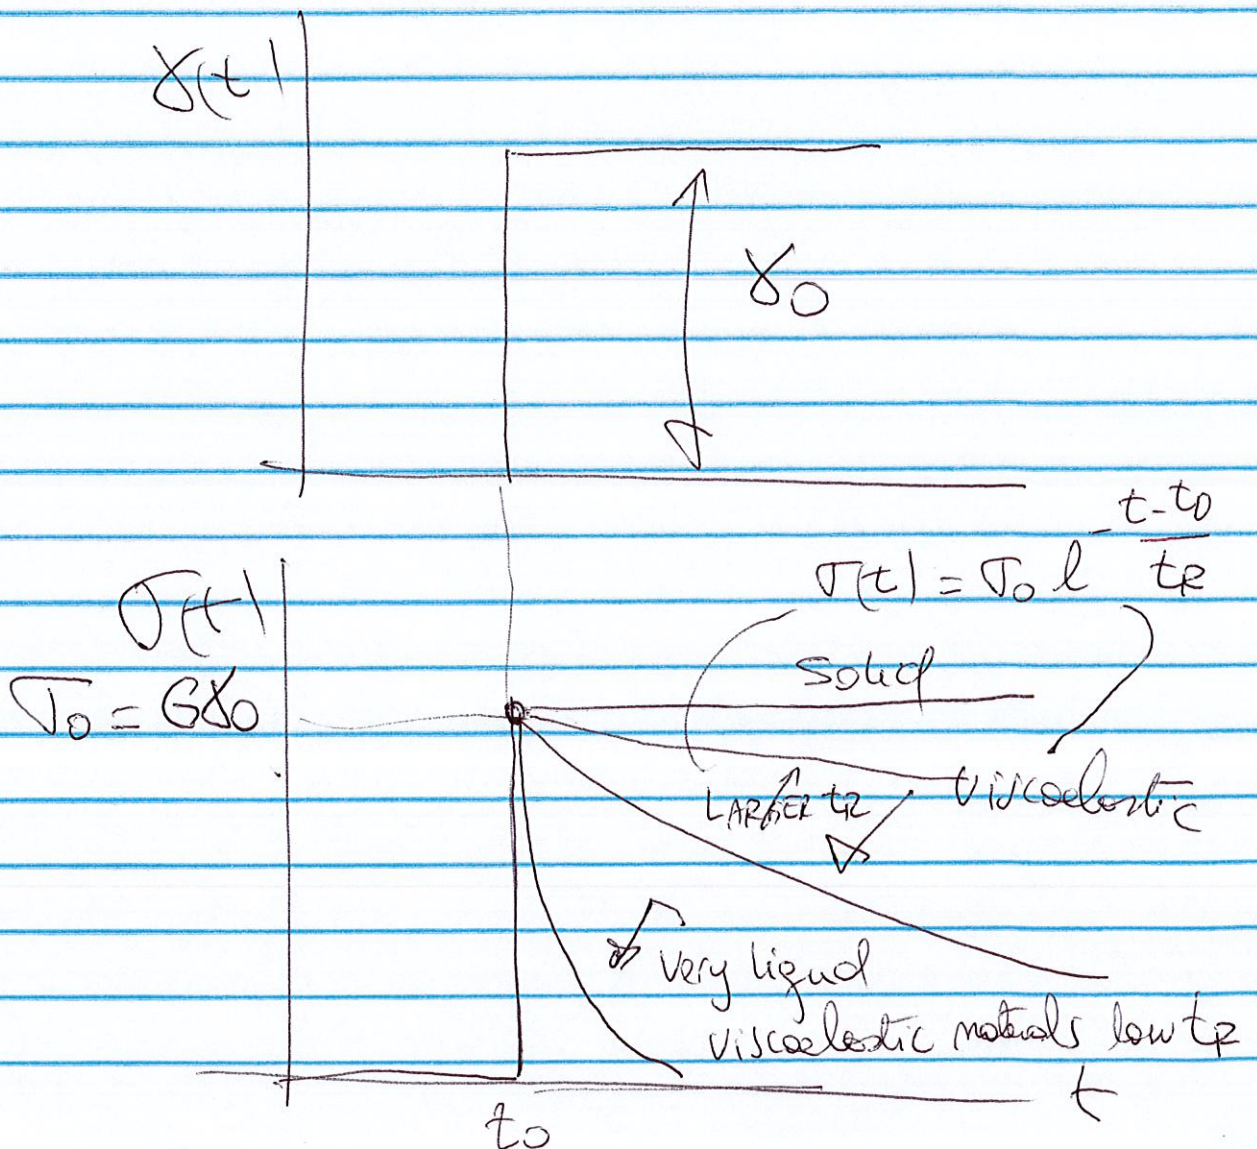 γ(t)
γ0
σ(t) = σ0 e^-(t-t0)/tR
σ(t)
Solid
σ0 = Gγ0
LARGER tR
Viscoelastic
Very liquid
viscoelastic materials low tR
t
t0